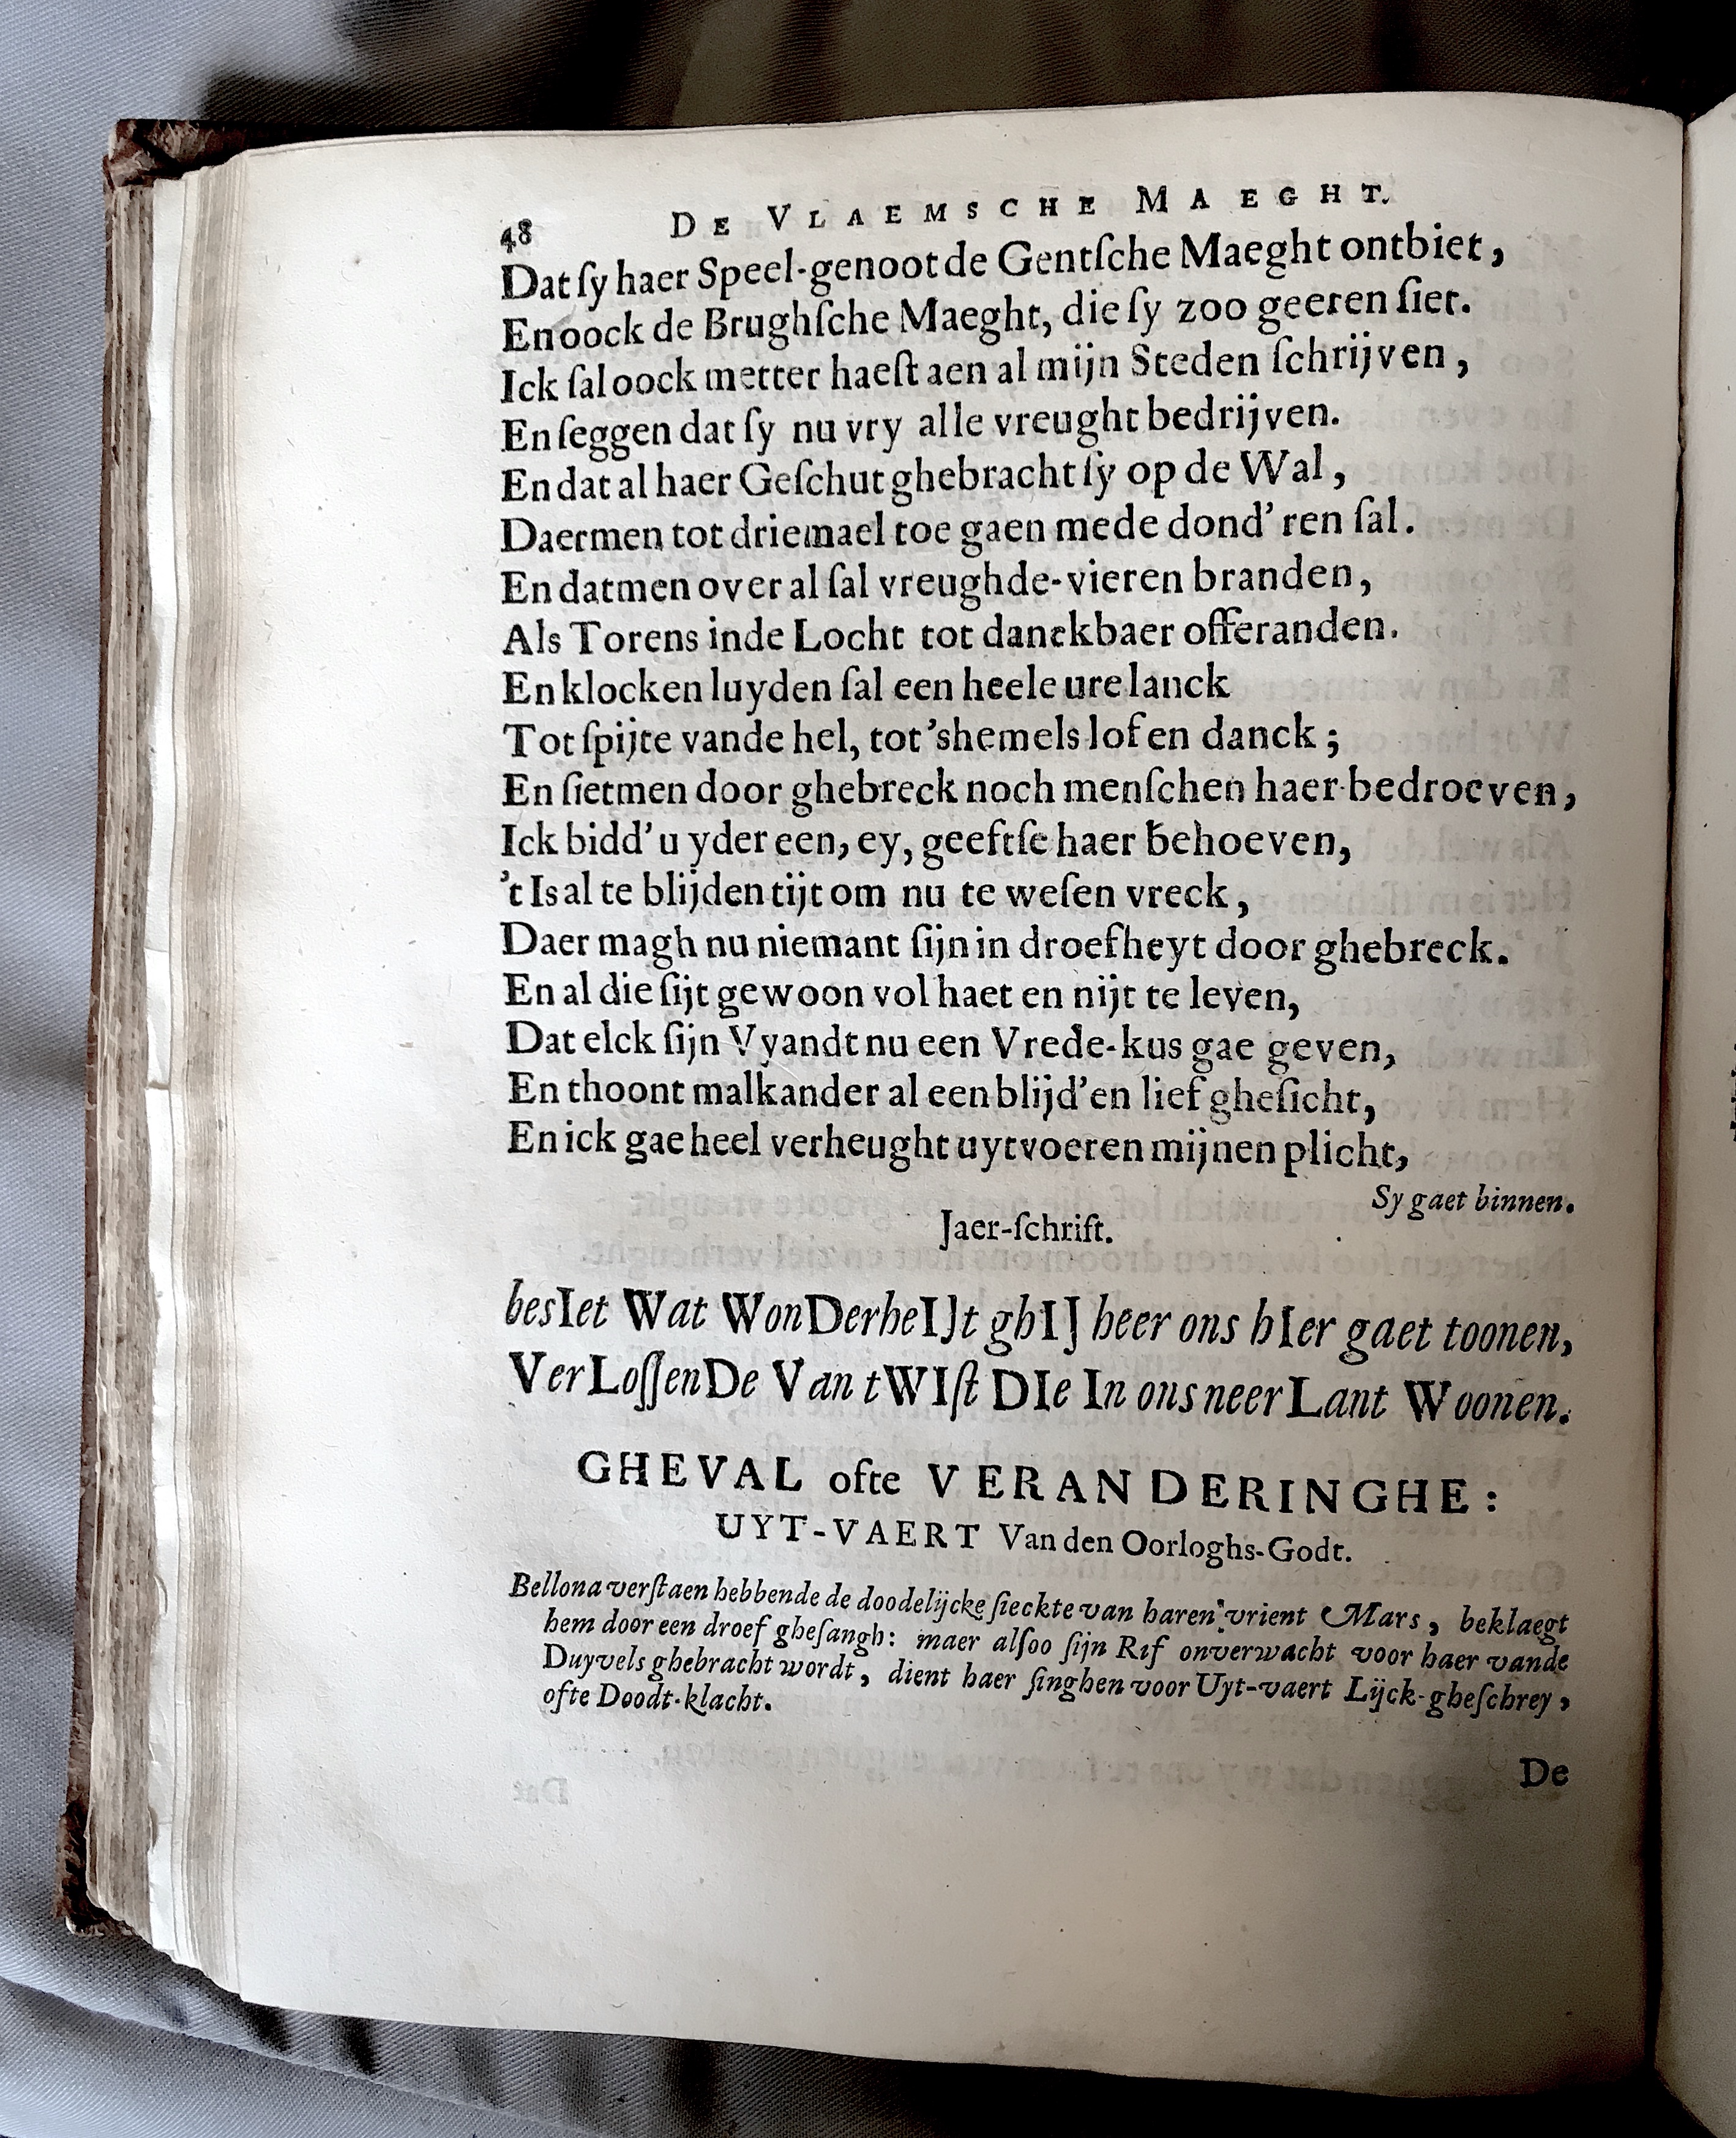 48 DE VLAEMSCHE MAEGHT.
Dat ſy haer Speel-genoot de Gentſche Maeght ontbiet,
En oock de Brughſche Maeght, die ſy zoo geeren ſiet.
Ick ſal oock metter haeſt aen al mijn Steden ſchrijven,
En ſeggen dat ſy nu vry alle vreught bedrijven.
En dat al haer Geſchut ghebracht ſy op de Wal,
Daermen tot driemael toe gaen mede dond'ren ſal.
En datmen over al ſal vreughde-vieren branden,
Als Torens inde Locht tot danckbaer offeranden.
En klocken luyden ſal een heele ure lanck
Tot ſpijte vande hel, tot 'shemels lof en danck;
En ſietmen door ghebreck noch menſchen haer bedroeven,
Ick bidd' u yder een, ey, geeftſe haer behoeven,
't Is al te blijden tijt om nu te weſen vreck,
Daer magh nu niemant ſijn in droefheyt door ghebreck.
En al die ſijt gewoon vol haet en nijt te leven,
Dat elck ſijn Vyandt nu een Vrede-kus gae geven,
En thoont malkander al een blijd' en lief gheſicht,
En ick gae heel verheught uytvoeren mijnen plicht,
Sy gaet binnen.
Jaer-ſchrift.
besIet Wat WonDerheIJt ghIJ heer ons hIer gaet toonen,
VerLoſſenDe Van tWIſt DIe In ons neerLant Woonen.
GHEVAL ofte VERANDERINGHE:
UYT-VAERT Van den Oorloghs-Godt.
Bellona verſtaen hebbende de doodelijcke ſieckte van haren vrient Mars, beklaegt
hem door een droef gheſangh: maer alſoo ſijn Rif onverwacht voor haer vande
Duyvels ghebracht wordt, dient haer ſinghen voor Uyt-vaert Lijck-gheſchrey,
ofte Doodt-klacht.
De